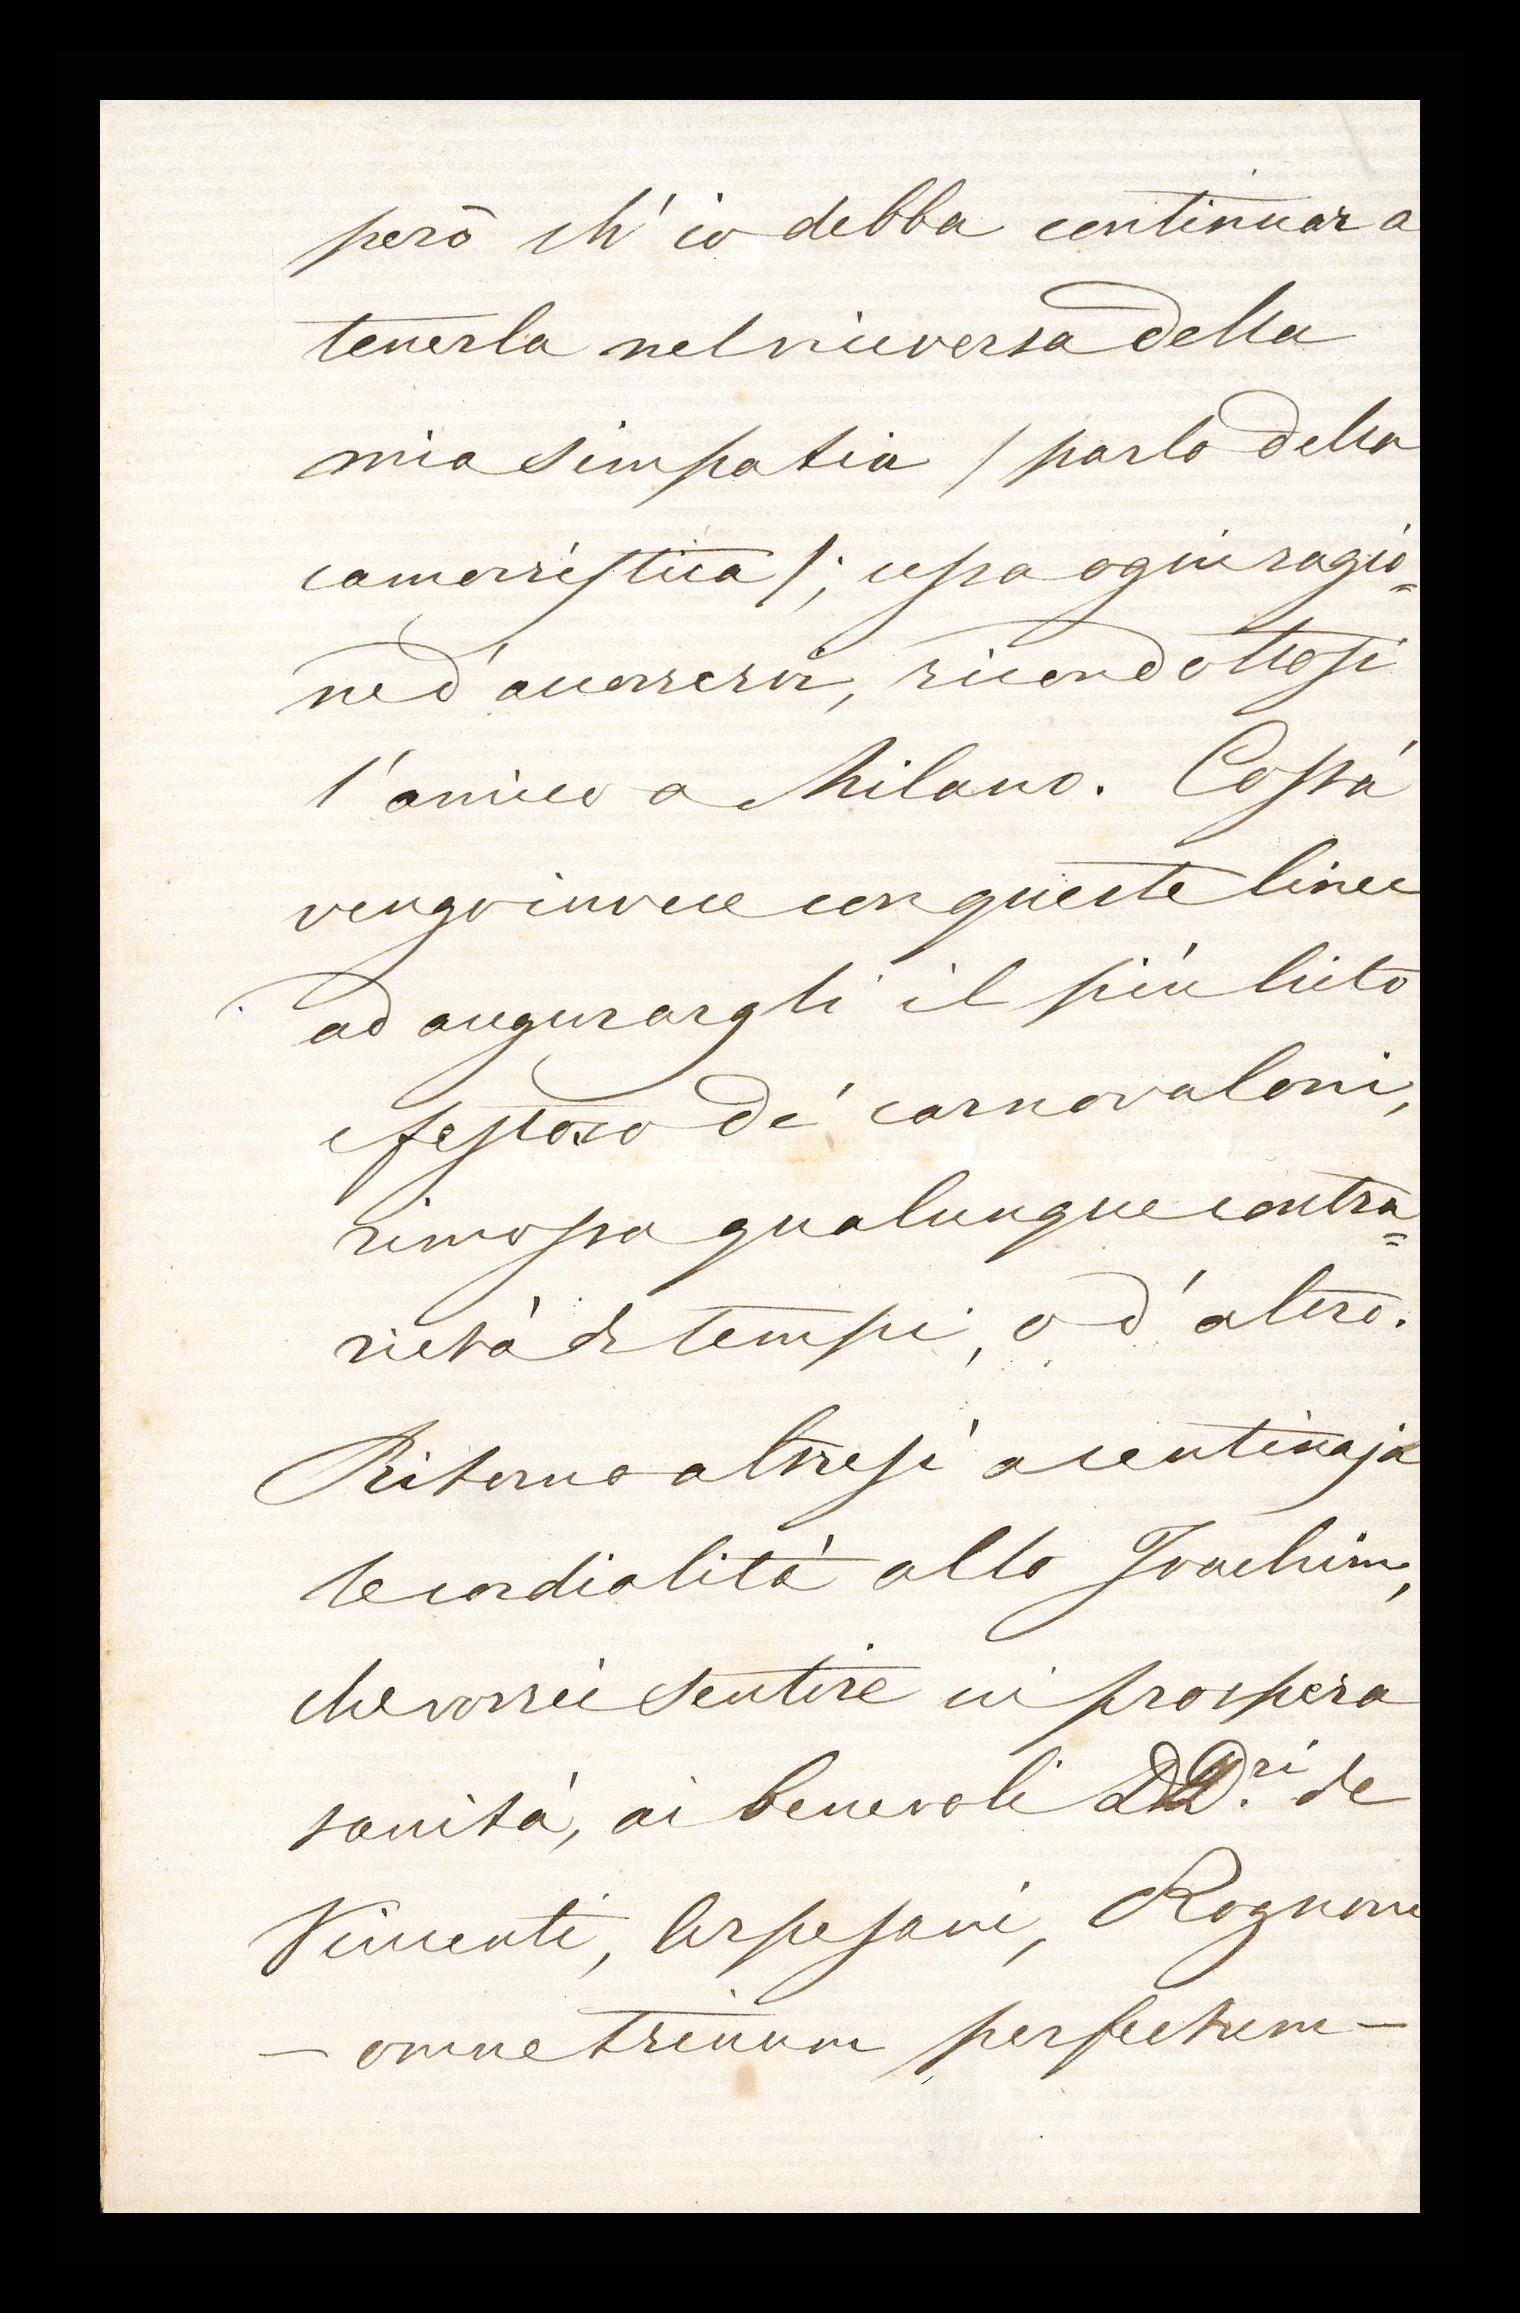 però ch' io debba continuar a
tenerla nel viceversa della
mia simpatia / parlo della
camorristica /; cessa ogni ragio=
ne d' accorrervi, ricondottosi
l' amico a Milano. Costà
vengo invece con queste linee
ad augurargli il più lieto
e festoso de' carnovaloni,
rimossa qualunque contra=
rietà di tempi, o d' altro.
Ritorno altresì a centinaja
le cordialità allo Joachim,
che vorrei sentire in prospera
sanità, ai benevoli DD.ri de
Vincenti, Arpesani, Rognoni
– omne trinum perfectum –